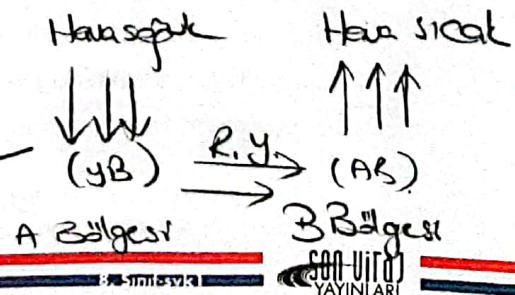 Hava soğuk Hava sıcak
(YB) R.Y. (AB)
A Bölgesi B Bölgesi
8. Sınıf-SVK Son Viraj
YAYINLARI